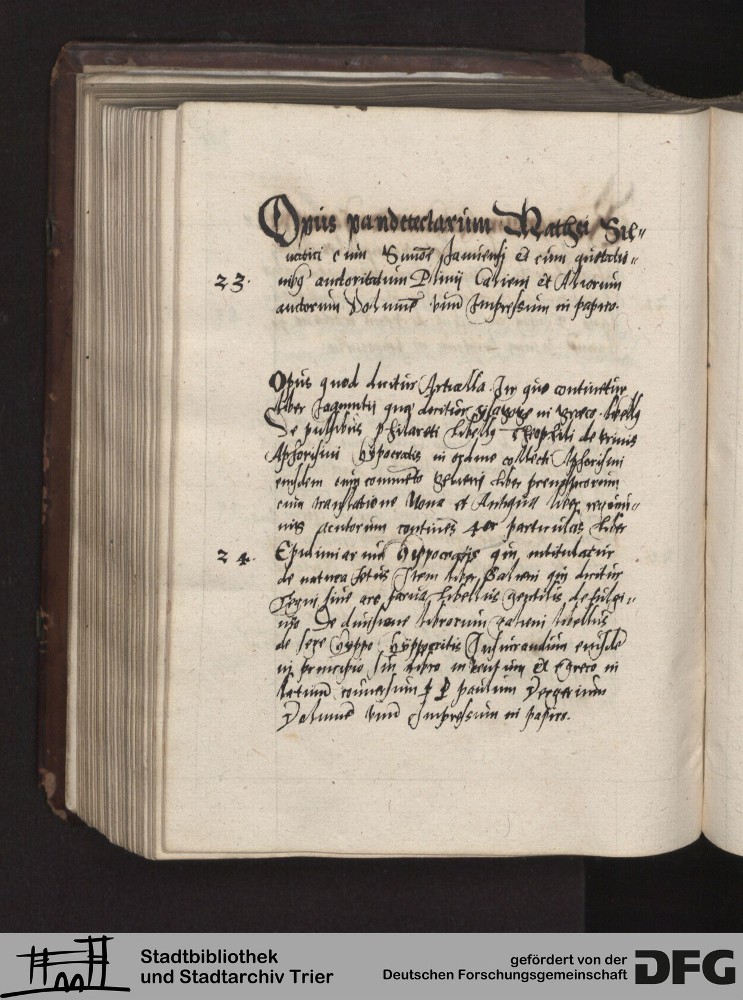 Opus pandectarum Mathei Sil-
uatici cum Simone Januensi et cum quotatio-
23. nibus auctoritatum Plinij Galieni et Aliorum
auctorum Volumen vnum Impressum in papiro.
Opus quod dicitur Articella In quo continetur
liber Joannitij qui dicitur Isagoge in greco libellus
De pulsibus Philareti libellus Theophili de vrinis
Aphorismi Hypocratis in ordine collecti Aphorismi
eiusdem cum commento Galieni liber prenosticorum
cum translatione Noua et Antiqua liber regimi-
nis acutorum continens 4or particulas liber
24. Epidimiarum Hippocratis qui intitulatur
de natura fetus Item liber Galieni qui dicitur
Tegni siue ars parua libellus gentilis de
De diuisione librorum galieni libellus
de lege Hyppo Hyppocritis Iusiurandum eiusdem
in principio sui libro inuentum Et Egreco in
latinum conuersum per P paulum Vergerium
Volumen vnum Impressum in papiro.
Stadtbibliothek
und Stadtarchiv Trier
gefördert von der
Deutschen Forschungsgemeinschaft
DFG